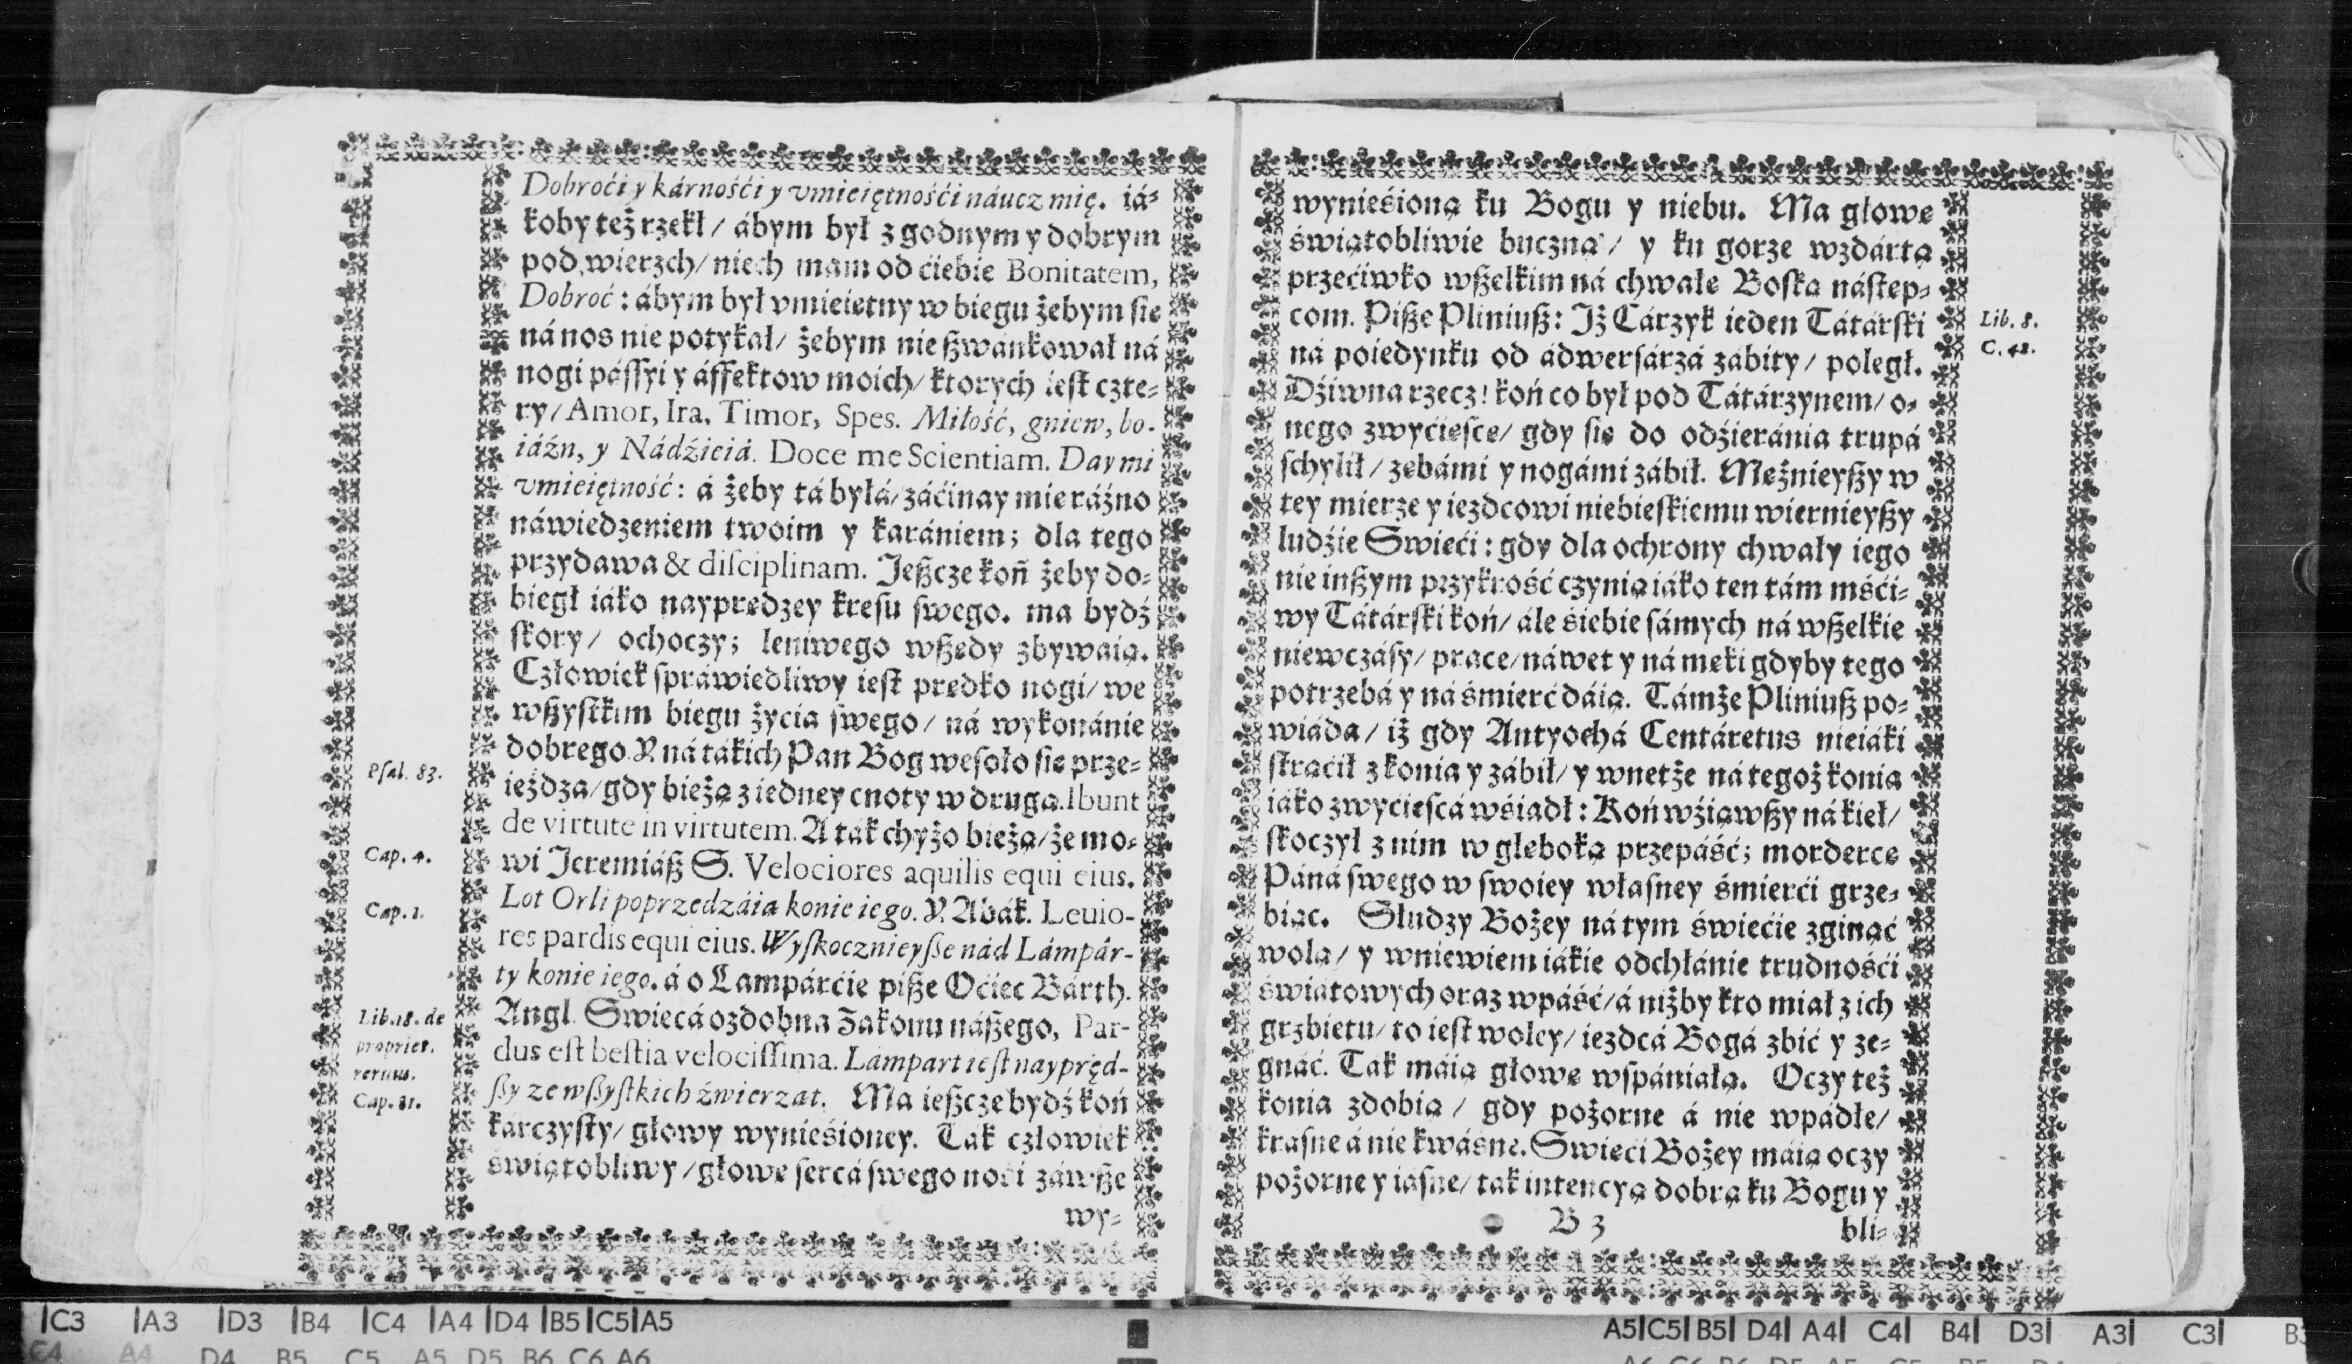 Dobroći y kárnośći y vmieiętnośći náucz mię. iá-
koby też rzekł / ábym był z godnym y dobrym
pod wierzch / niech mam od ćiebie Bonitatem,
Dobroć : ábym był vmieiętny w biegu żebym się
ná nos nie potykał / żebym nie ßwánkował ná
nogi pássyi y áffektow moich / ktorych iest czte-
ry / Amor, Ira, Timor, Spes. Miłość, gniew, bo-
iáźn, y Nádźieiá. Doce me Scientiam. Day mi
vmieiętność : á żeby tá byłá / záćinay mię ráźno
náwiedzeniem twoim y karániem; dla tego
przydawa & diſciplinam. Jeßcze koń żeby do-
biegł iáko nayprędzey kresu swego. ma bydź
ſkory / ochoczy; leniwego wßędy zbywaią.
Człowiek ſpráwiedliwy iest prędko nogi / we
wßyſtkim biegu życia ſwego / ná wykonánie
dobrego. Y ná tákich Pan Bog weſoło się prze-
ieżdza / gdy bieżą z iedney cnoty w drugą. Ibunt
Pſal. 83.
de virtute in virtutem. A ták chyżo bieżą / że mo-
wi Jeremiáß S. Velociores aquilis equi eius.
Cap. 4.
Lot Orli poprzedzáią konie iego. Y Abák. Leuio-
Cap. 1.
res pardis equi eius. Wyſkocznieyſße nád Lámpár-
ty konie iego. á o Lampárćie piße Oćiec Bárth.
Angl. Swiecá ozdobna Zakonu náßego, Par-
Lib. 18. de
dus eſt beſtia velociſſima. Lámpart ieſt naypręd-
propriet.
rerum.
ſßy ze wſßyſtkich źwierząt. Ma ießcze bydź koń
Cap. 81.
kárczyſty / głowy wynieśioney. Ták człowiek
świątobliwy / głowę ſercá ſwego nośi záwße
wy-
wynieśioną ku Bogu y niebu. Ma głowę
świątobliwie buczną / y ku gorze wzdártą
przećiwko wßelkim ná chwałę Boſką náſtęp-
com. Piße Pliniuß: Jż Cárzyk ieden Tátárſki
Lib. 8.
C. 42.
ná poiedynku od ádwerſárzá zábity / poległ.
Dźiwna rzecz! koń co był pod Tátárzynem / o-
nego zwyćięſcę / gdy się do odźieránia trupá
ſchylił / zębámi y nogámi zábił. Mężnieyßy w
tey mierze y iezdcowi niebieſkiemu wiernieyßy
ludźie Swięći : gdy dla ochrony chwały iego
nie inßym przykrość czynią iáko ten tám mśći-
wy Tátárſki koń / ále śiebie ſámych ná wßelkie
niewczáſy / prace / náwet y ná męki gdyby tego
potrzebá y ná śmierć dáią. Támże Pliniuß po-
wiáda / iż gdy Antyochá Centáretus nieiáki
ſtrącił z konia y zábił / y wnetże ná tegoż konia
iáko zwyćięſcá wśiadł : Koń wźiąwßy ná kieł /
ſkoczył z nim w głęboką przepáść; mordercę
Páná ſwego w ſwoiey właſney śmierći grze-
biąc. Słudzy Bożey ná tym świećie zginąć
wolą / y wniewiem iákie odchłánie trudnośći
świátowych oraz wpáść / á niżby kto miał z ich
grzbietu / to iest woley / iezdcá Bogá zbić y ze-
gnáć. Tak máią głowę wſpániałą. Oczy też
konia zdobią / gdy pożorne á nie wpádłe /
kraſne á nie kwáśne. Swięći Bożey máią oczy
pożorne y iáſne / tak intencyą dobrą ku Bogu y
B 3
bli-